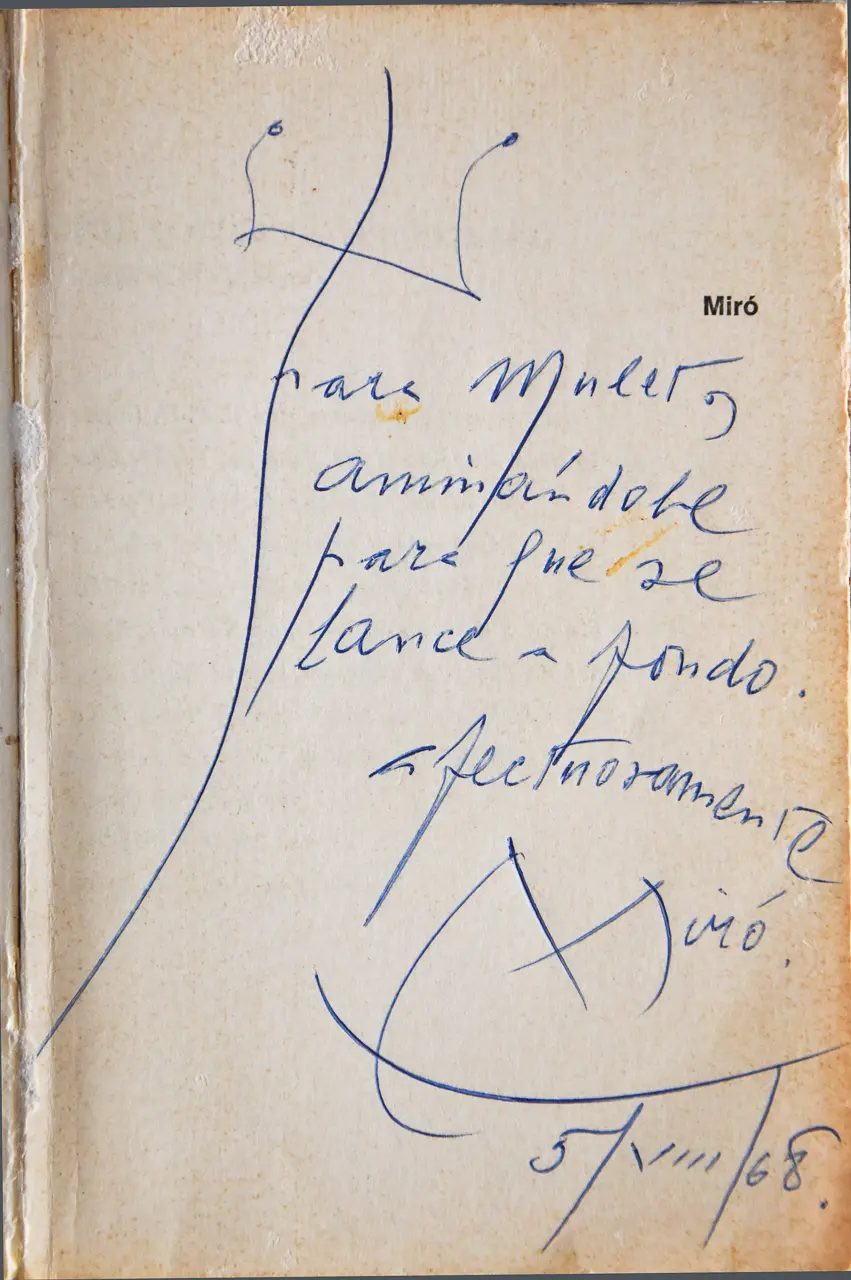 Miró
para Mulet,
animándole
para que se
lance a fondo.
afectuosamente
Miró.
5/VIII/68.